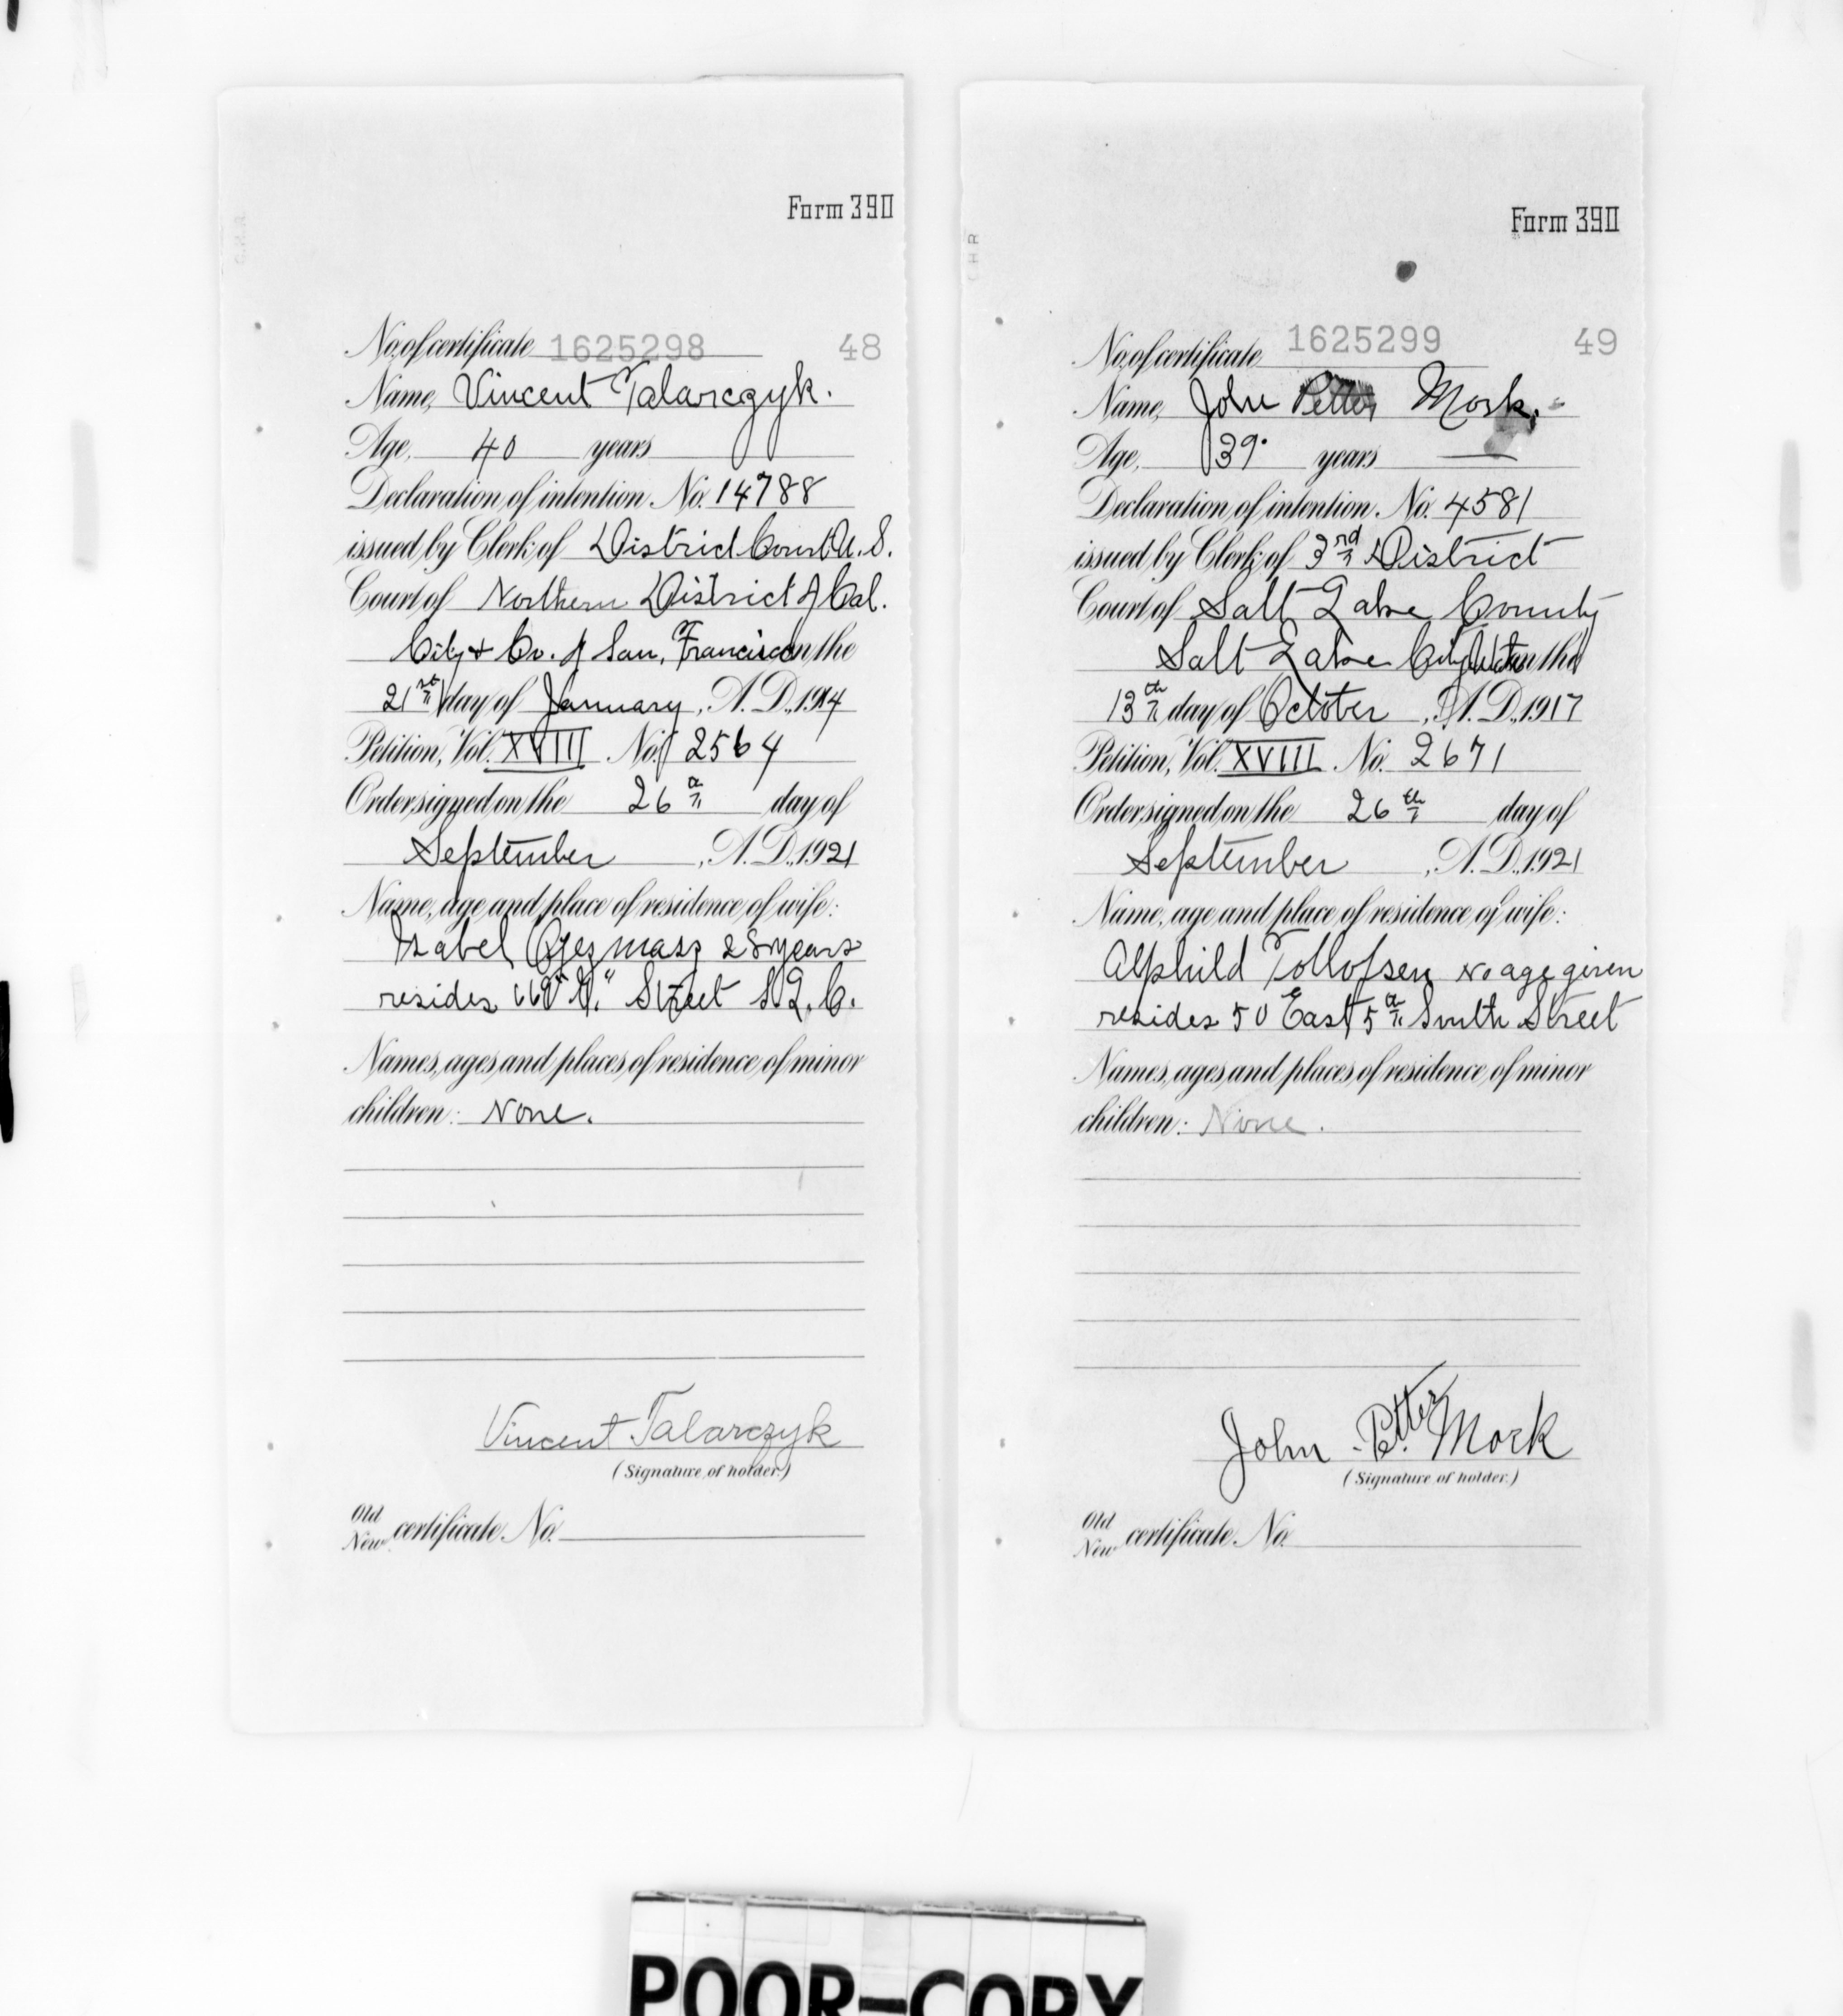 Form 390
No. of certificate 1625298 48
Name, Vincent Talarczyk.
Age, 40 years
Declaration of intention No. 14788
issued by Clerk of District Court U. S.
Court of Northern District of Cal.
City & Co. of San, Francisco on the
21st day of January, A. D., 1914
Petition, Vol. XVIII No. 2564
Order signed on the 26th day of
September, A. D., 1921
Name, age and place of residence of wife:
Izabel 28 years
resides Street S. L. C.
Names, ages and places of residence of minor
children: None.
Vincent Talarczyk
(Signature of holder.)
Old
New certificate No.
Form 390
No. of certificate 1625299 49
Name, John Petter Mork.
Age, 39. years
Declaration of intention No. 4581
issued by Clerk of 3rd District
Court of Salt Lake County
Salt Lake City Utah on the
13th day of October, A. D., 1917
Petition, Vol. XVIII No. 2671
Order signed on the 26th day of
September, A. D., 1921
Name, age and place of residence of wife:
Alphild Tollofsen no age given
resides 50 East 5th South Street
Names, ages and places of residence of minor
children: None.
John Petter Mork
(Signature of holder.)
Old
New certificate No.
POOR-COPY